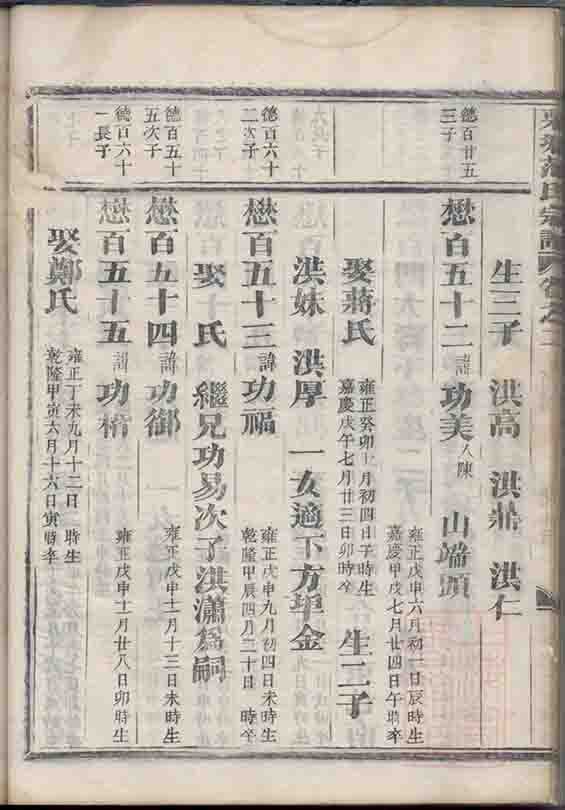 范氏宗譜
卷之二
生三子 洪高 洪鼎 洪仁
德百廿五
三子
懋百五十二 諱功美 入陳 山端頭
雍正戊申六月初一日辰時生
嘉慶甲戌七月廿四日午時卒
娶蔣氏
雍正癸卯五月初四日子時生
嘉慶戊午七月廿三日卯時卒
生二子
洪妹 洪厚 一女適下方畢金
德百六十
二次子
懋百五十三 諱功福
雍正戊申九月初四日未時生
乾隆甲辰四月二十日 時卒
娶十氏 繼兄功易次子洪瀟爲嗣
德百五十
五次子
懋百五十四 諱功御
雍正戊申十一月十三日未時生
德百六十
一長子
懋百五十五 諱功楷
雍正戊申十一月廿八日卯時生
娶鄭氏
雍正丁未九月十二日 時生
乾隆甲寅六月十六日寅時卒